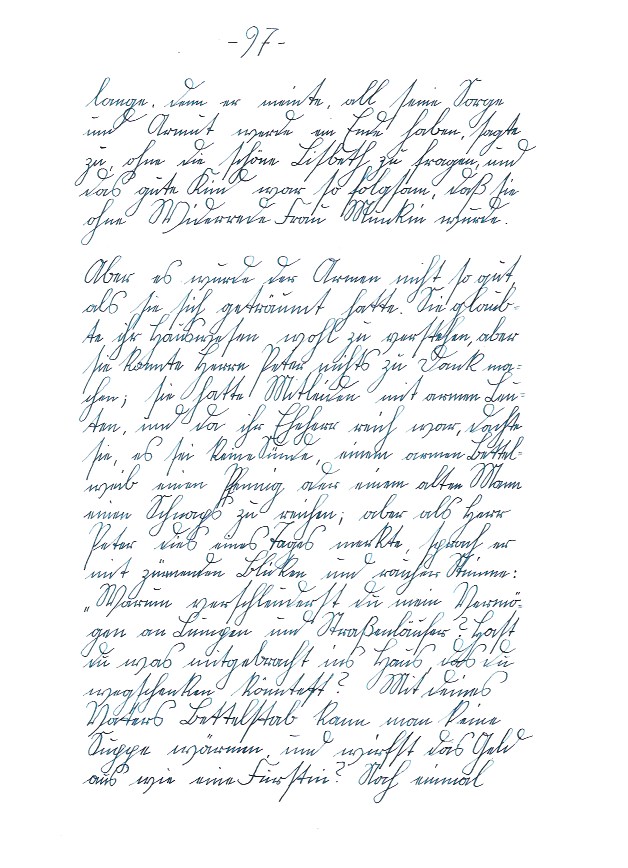 -97-
lange, denn er meinte, all seine Sorge
und Armut werde ein Ende haben, sagte
zu, ohne die schöne Lisbeth zu fragen, und
das gute Kind war so folgsam, daß sie
ohne Widerrede Frau Munkin wurde.
Aber es wurde der Armen nicht so gut,
als sie sich geträumt hatte. Sie glaub-
te ihr Hauswesen wohl zu verstehen, aber
sie konnte Herrn Peter nichts zu Dank ma-
chen; sie hatte Mitleiden mit armen Leu-
ten, und da ihr Eheherr reich war, dachte
sie, es sei keine Sünde, einem armen Bettel-
weib einen Pfennig oder einem alten Mann
einen Schnaps zu reichen; aber als Herr
Peter dies eines Tages merkte, sprach er
mit zürnenden Blicken und rauher Stimme:
„Warum verschleuderst du mein Vermö-
gen an Lumpen und Straßenläufer? Hast
du was mitgebracht ins Haus, das du
wegschenken könntest? Mit deines
Vaters Bettelstab kann man keine
Suppe wärmen, und wirfst das Geld
aus wie eine Fürstin? Noch einmal